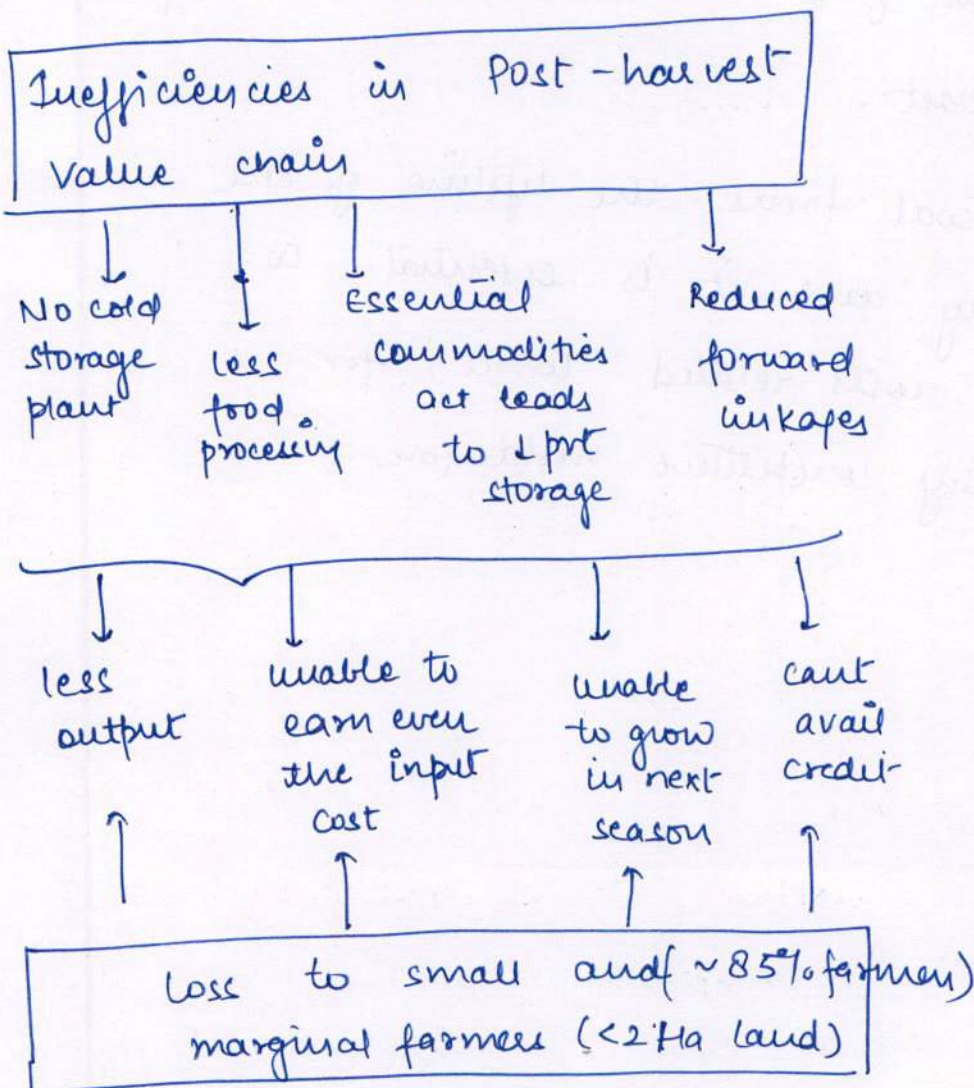 Inefficiencies in Post-harvest
value chain
No cold
storage
plant
less
food
processing
Essential
commodities
act leads
to ↓ prt
storage
Reduced
forward
linkages
less
output
unable to
earn even
the input
cost
unable
to grow
in next
season
cant
avail
credit
Loss to small and (~85% farmers)
marginal farmers (<2 Ha land)